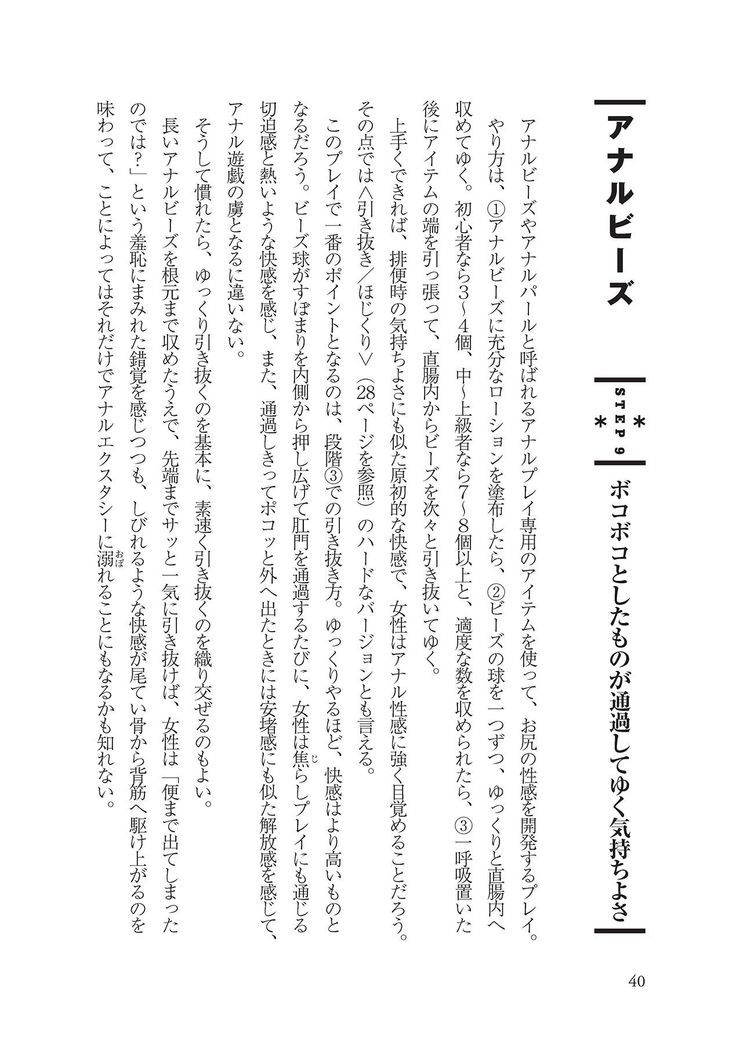 アナルビーズ
STEP 9
ボコボコとしたものが通過してゆく気持ちよさ
アナルビーズやアナルパールと呼ばれるアナルプレイ専用のアイテムを使って、お尻の性感を開発するプレイ。
やり方は、①アナルビーズに充分なローションを塗布したら、②ビーズの球を一つずつ、ゆっくりと直腸内へ
収めてゆく。初心者なら3〜4個、中〜上級者なら7〜8個以上と、適度な数を収められたら、③一呼吸置いた
後にアイテムの端を引っ張って、直腸内からビーズを次々と引き抜いてゆく。
上手くできれば、排便時の気持ちよさにも似た原初的な快感で、女性はアナル性感に強く目覚めることだろう。
その点では＜引き抜き／ほじくり＞（28ページを参照）のハードなバージョンとも言える。
このプレイで一番のポイントとなるのは、段階③での引き抜き方。ゆっくりやるほど、快感はより高いものと
なるだろう。ビーズ球がすぼまりを内側から押し広げて肛門を通過するたびに、女性は焦らしプレイにも通じる
切迫感と熱いような快感を感じ、また、通過しきってポコッと外へ出たときには安堵感にも似た解放感を感じて、
アナル遊戯の虜となるに違いない。
そうして慣れたら、ゆっくり引き抜くのを基本に、素速く引き抜くのを織り交ぜるのもよい。
長いアナルビーズを根元まで収めたうえで、先端までサッと一気に引き抜けば、女性は「便まで出てしまった
のでは？」という羞恥にまみれた錯覚を感じつつも、しびれるような快感が尾てい骨から背筋へ駆け上がるのを
味わって、ことによってはそれだけでアナルエクスタシーに溺れることにもなるかも知れない。
40